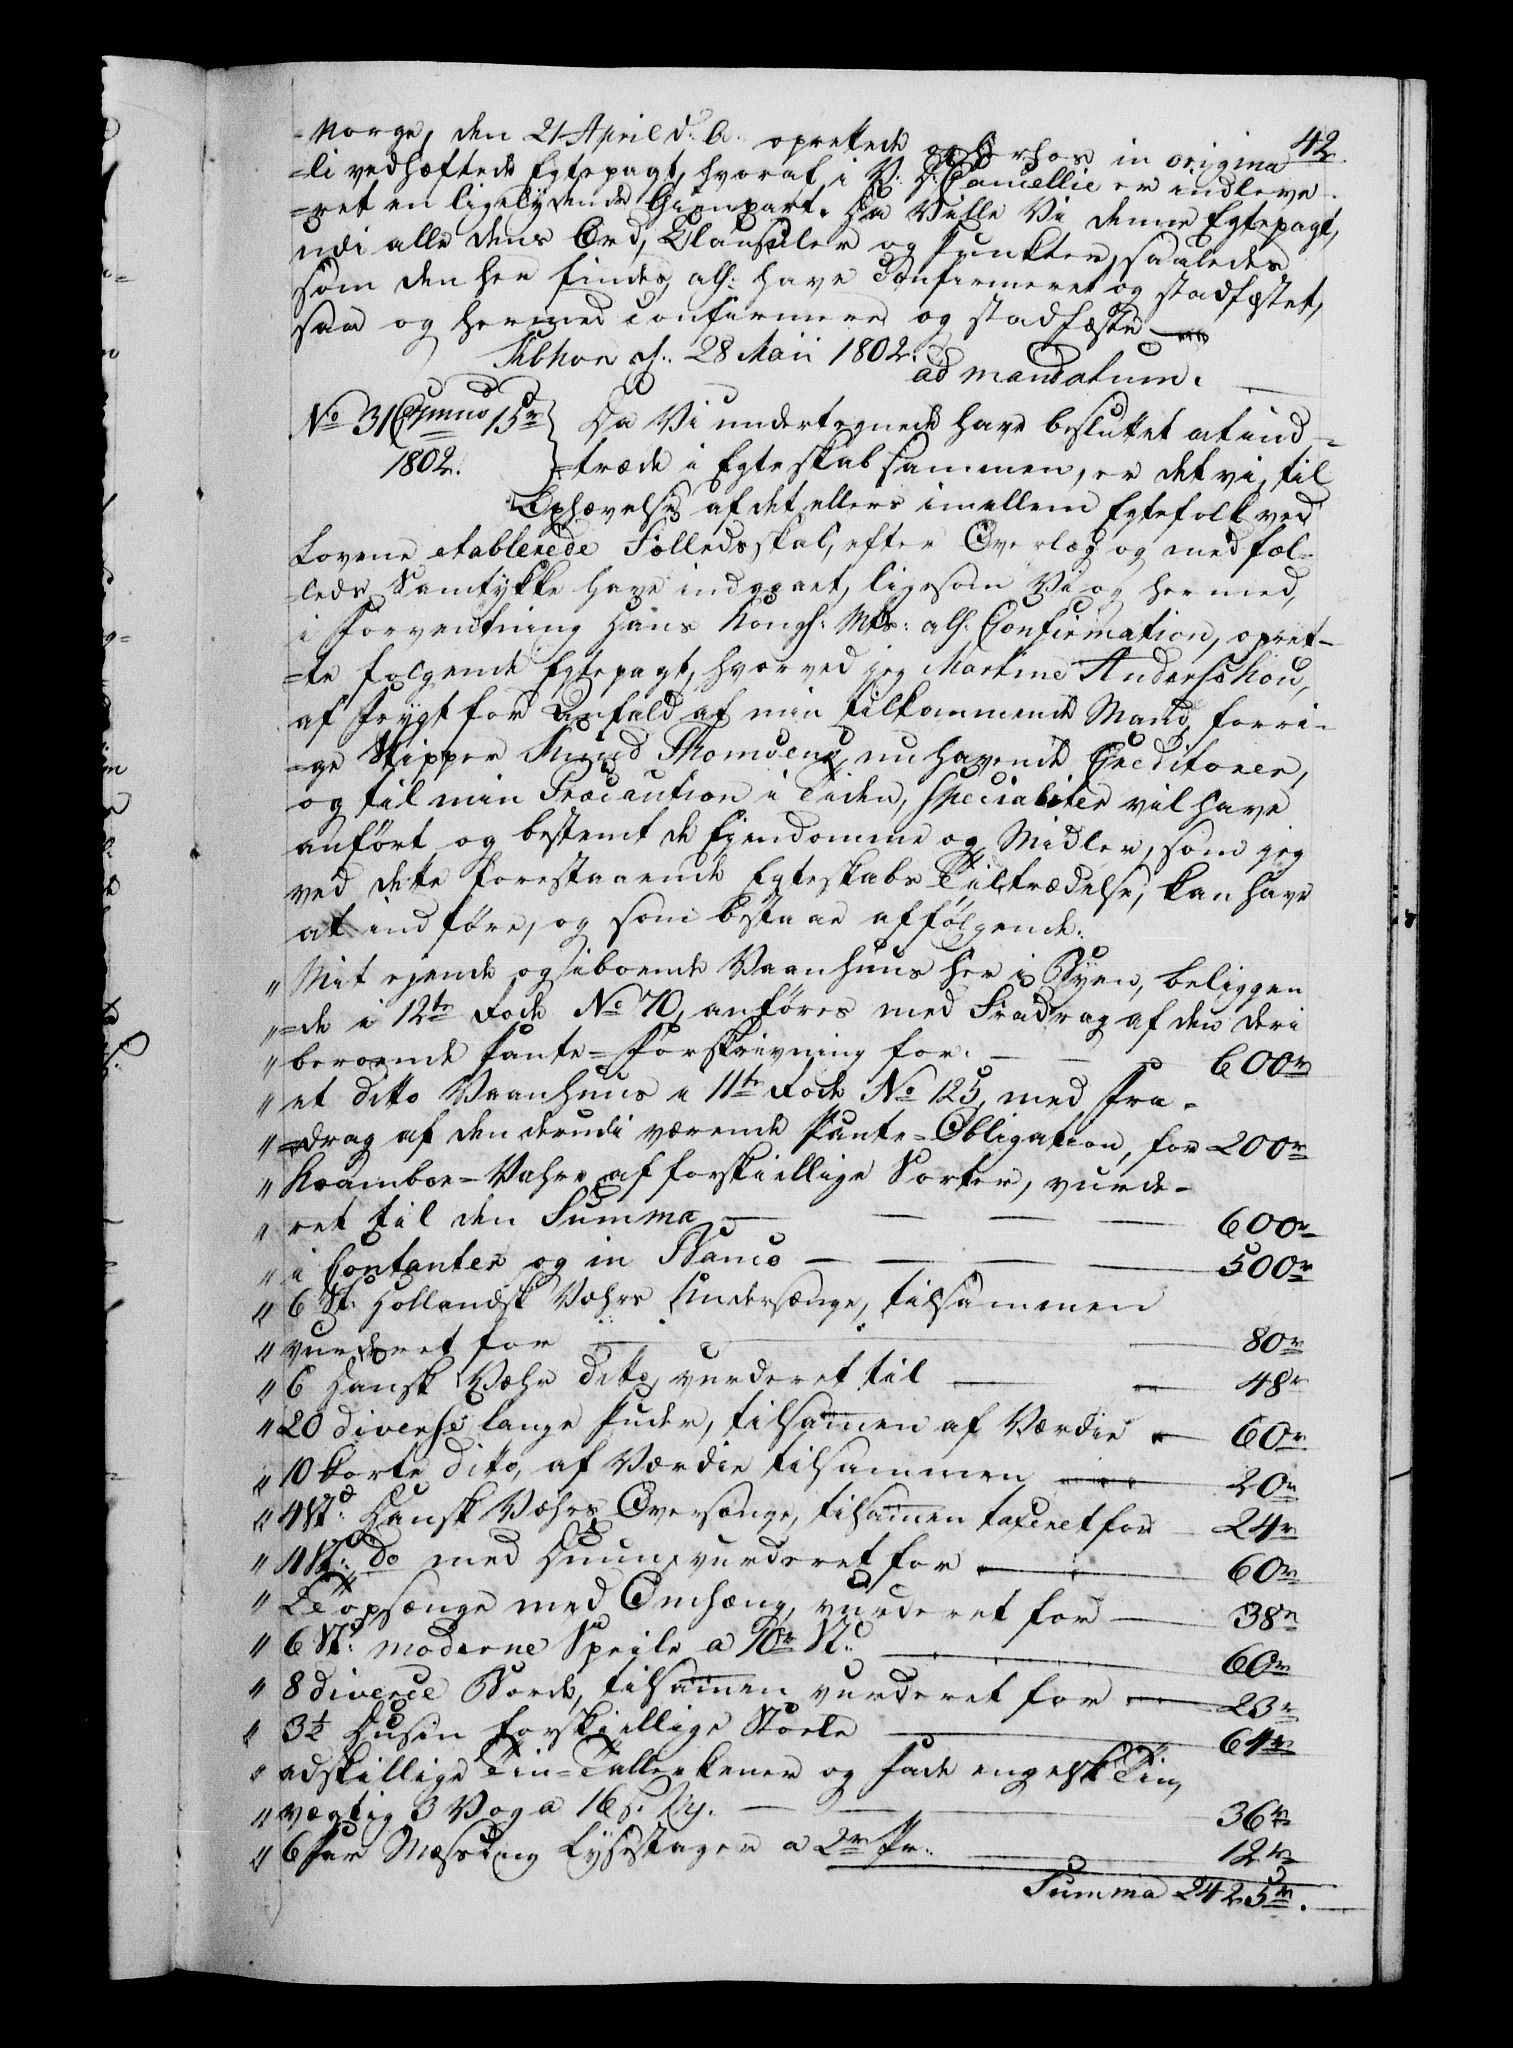 42.
Norge, den 21 April d: A: oprettede og herhos in origina
=li vedhæftede Egtepagt, hvoraf i V: D: Cancellie er indleve
=ret en ligelydende Gienpart. Da Ville Vi denne Egtepagt,
udi alle dens Ord, Clausuler og Punkter, saaledes
som den her findes, alf: have Confirmeret og stadfæstet,
saa og hermed confirmere og stadfæste
Kbhvn d: 28 Maii 1802.
ad mandatum.
No 31 15r
1802.
Da Vi undertegnede have besluttet at ind=
=træde i Egteskab sammen, er det vi, til
Ophævelse af det ellers imellem Egtefolk ved
Lovene etablerede Fælledsskab, efter Overlæg og med fæl=
=leds Samtykke have indgaaet, ligesom Vi og hermed,
i Forventning Hans Kongl: Mts: alf: Confirmation, opret=
=te følgende Egtepagt, hvorved jeg Martine Anderskou,
af Frygt for Anfald af min tilkommende Mand, forri=
=ge Skipper Knud Thomsens, nu havende Creditorer,
og til min Præcaution i Tiden, specialiter vil have
anført og bestemt de Ejendomme og Midler, som jeg
ved dette forestaaende Egteskabs Tiltrædelse, kan have
at indføre, og som bestaar af følgende:
" Mit ejende og iboende Vaanhuus her i Byen, beliggen
" =de i 12te Rode No 70, anføres med Fradrag af den deri
" beroende Pante=Forskrivning for. 600r
" et ditto Vaanhuus i 11te Rode No 125, med Fra=
" =drag af den derudi værende Pante=Obligation, for 200r
" Kramboe=Vahre af forskiellige Sorter, vurde=
" ret til den Summa 600r
" i Contanter og in Banco 500r
" 6 St: Hollandsk Vohrs Undersenge, tilsammen
" vurderet for 80r
" 6 Dansk Vohr ditto, vurderet til 48r
" 20 diverse lange Puder, tilsamen af Værdie 60r
" 10 korte dito, af Værdie tilsammen 20r
" 4 St: Dansk Vohrs Oversenge, tilsamen taxeret for 24r
" 4 St: do med Duun, vurderet for 60r
" 2 Topsenge med Omhæng, vurderet for 38r
" 6 St: moderne Speile a 10r St: 60r
" 8 diverse Borde, tilsamen vurderet for 23r
" 3½ Dusin forskiellige Stoele 64r
" adskillige Tin=Tallerkener og Fade engelsk Tin,
" vegtig 3 Vog a 16 36r
" 6 Par Messing Lysestager a 2r Pr: 12r
Summa 2425r.